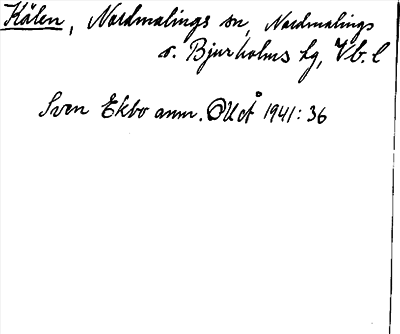 Kålen, Nordmalings sn, Nordmalings
o. Bjurholms tg, Vb. l
Sven Ekbo anm. OUÅ 1941: 36